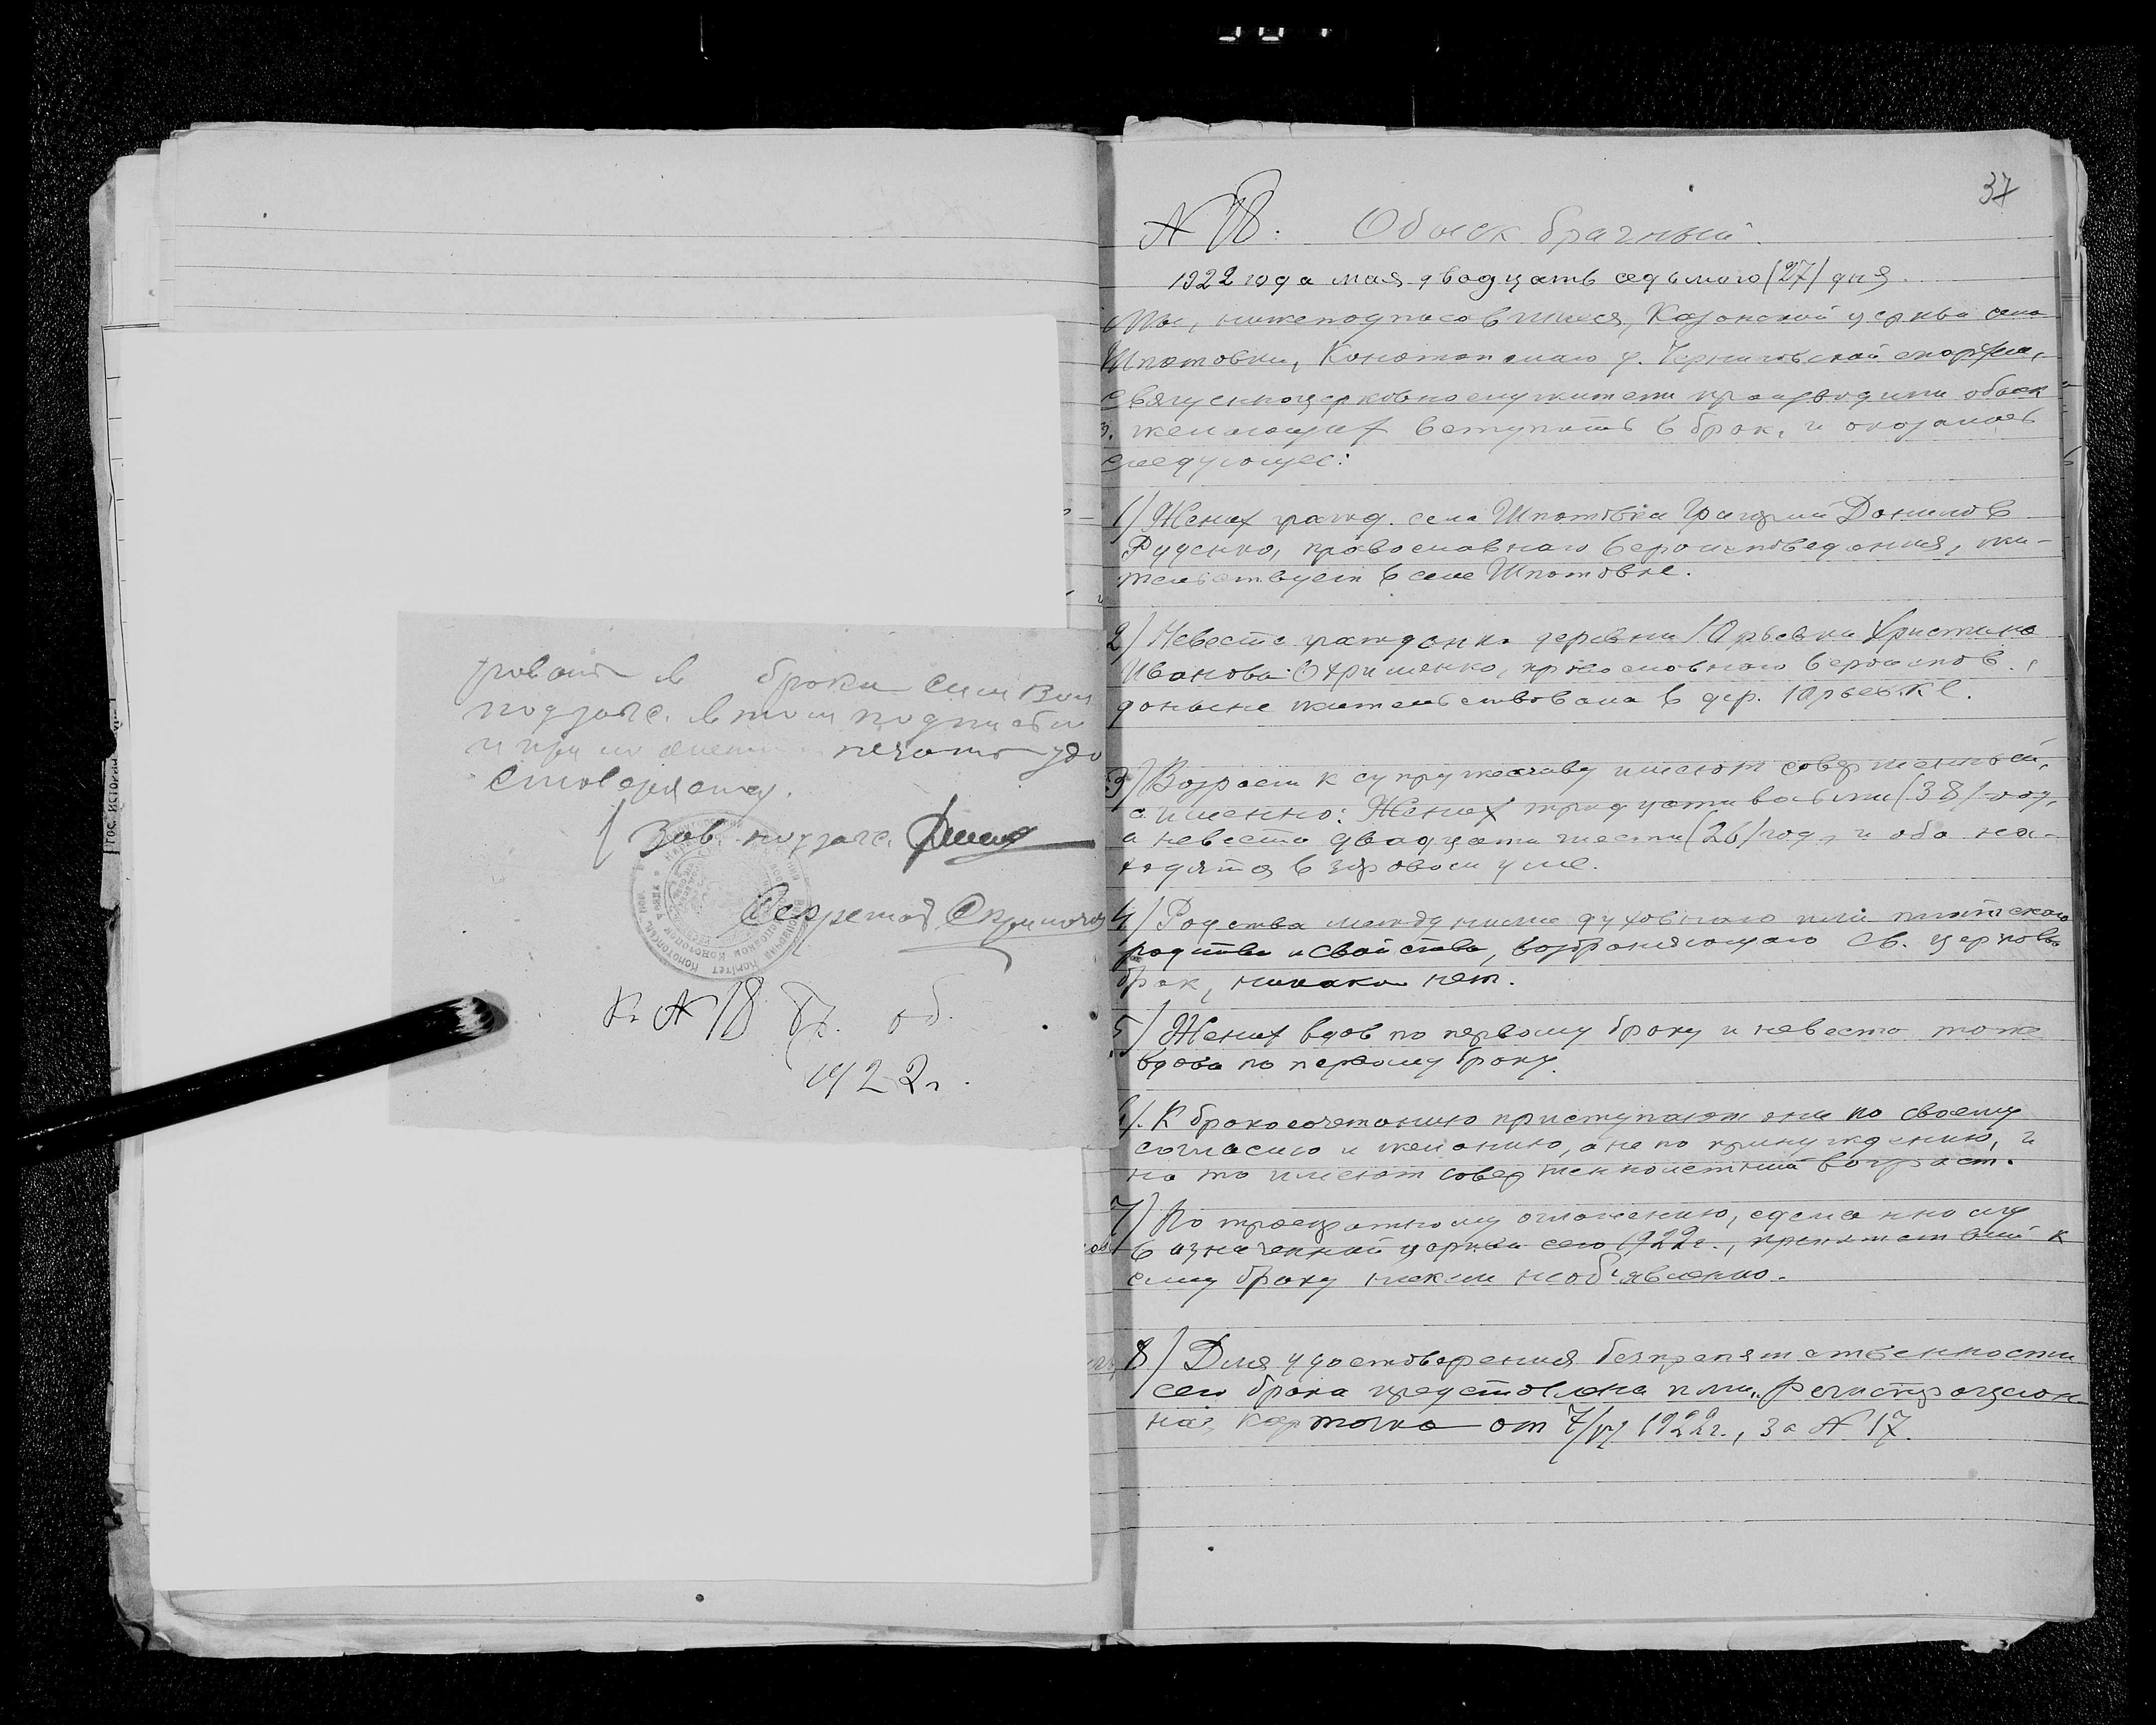 ровать в браки сим Вол
подзагс. в том подписью
и приложением печати удо
стоверяет.
Зав. подзагс.
Секретарь
К № 18 бр. об.
1922 г.
37
№ 18. Обыск брачный.
1922 года мая двадцать седьмого (27) дня.
Мы, нижеподписавшиеся, Казанской церкви села
Шпотовки, Конотопскаго у. Черниговской епархии,
священноцерковнослужители производили обыск
о желающих вступить в брак, и оказалось
следующее:
1) Жених гражд. села Шпотовки Данилов
Руденко, православнаго вероисповедания, жи-
тельствует в селе Шпотовке.
2) Невеста гражданка деревни Юрьевки Христина
Иванова Охрименко, православнаго вероиспов.,
доныне жительствовала в дер. Юрьевке.
3) Возраст к супружеству имеют совершенный,
а именно: Жених тридцати восьми (38) год,
а невеста двадцати шести (26) год, и оба на-
ходятся в здравом уме.
4) Родства между ними духовнаго или плотскаго
родства и свойства, возбраняющаго св. церковь
брак, никакого нет.
5) Жених вдов по первому браку и невеста тоже
вдова по первому браку.
6). К бракосочетанию приступают они по своему
согласию и желанию, а не по принуждению, и
на то имеют совершеннолетний возраст.
7) По троекратному оглашению, сделанному
в означенной церкви сего 1922 г., препятствий к
сему браку никем необ'явлено.
8) Для удостоверения безпрепятственности
сего брака представлена ими регистрацион-
ная карточка от 7/VI 1922 г., за № 17.